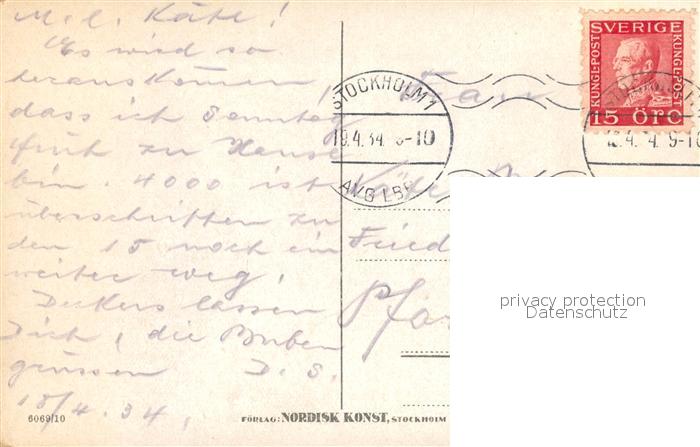 M. l. Käte!
Es wird so
herauskommen,
dass ich Sonntag
früh zu Hause
bin. 4000 ist
überschritten zu
den 15 noch ein
weiter weg!
Deckers lassen
Dich, die Buben
grüssen D. S.
18/4.34.
6069/10
FÖRLAG: NORDISK KONST, STOCKHOLM
STOCKHOLM 1
19.4.34. -10
AVG LBR
SVERIGE
KUNGL·POST
KUNGL·POST
15 ÖRE
4. 9-10
Frau
Käte
Fried
Pfa
privacy protection
Datenschutz